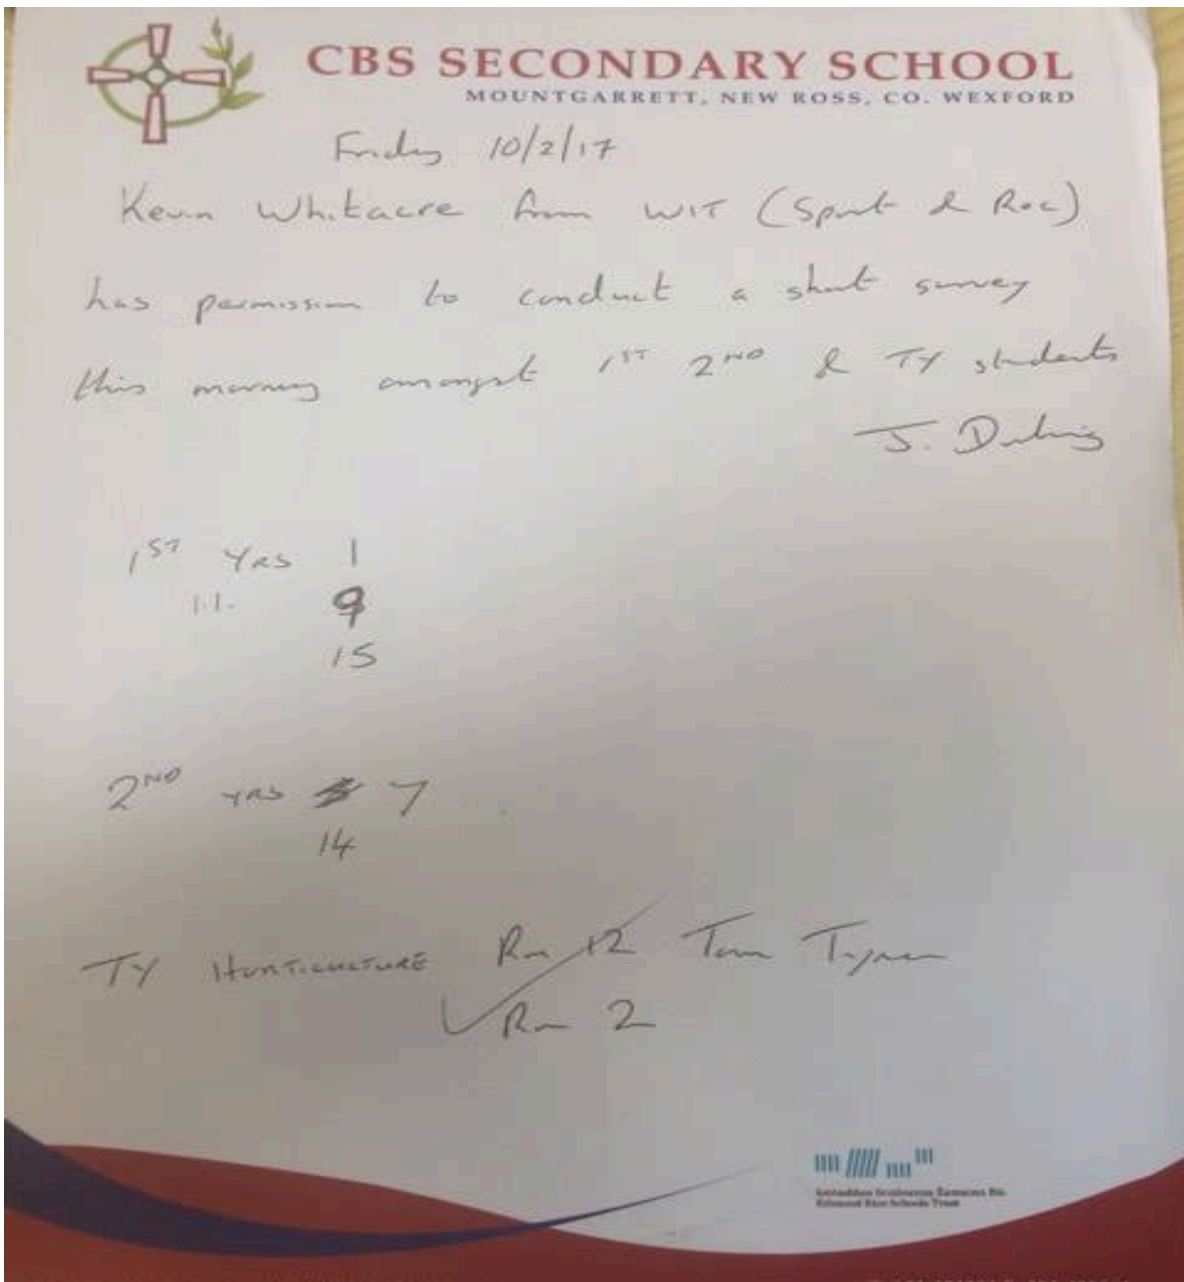 CBS SECONDARY SCHOOL
MOUNTGARRETT, NEW ROSS, CO. WEXFORD
Friday 10/2/17
Kevin Whitacre from WIT (Sport & Rec)
has permission to conduct a short survey
this morning amongst 1ST 2ND & TY students
J.
1ST YRS 1
11. 9
15
2ND YRS 7
14
TY HORTICULTURE Rm 12 Tom
Rm 2
Edmund Rice Schools Trust